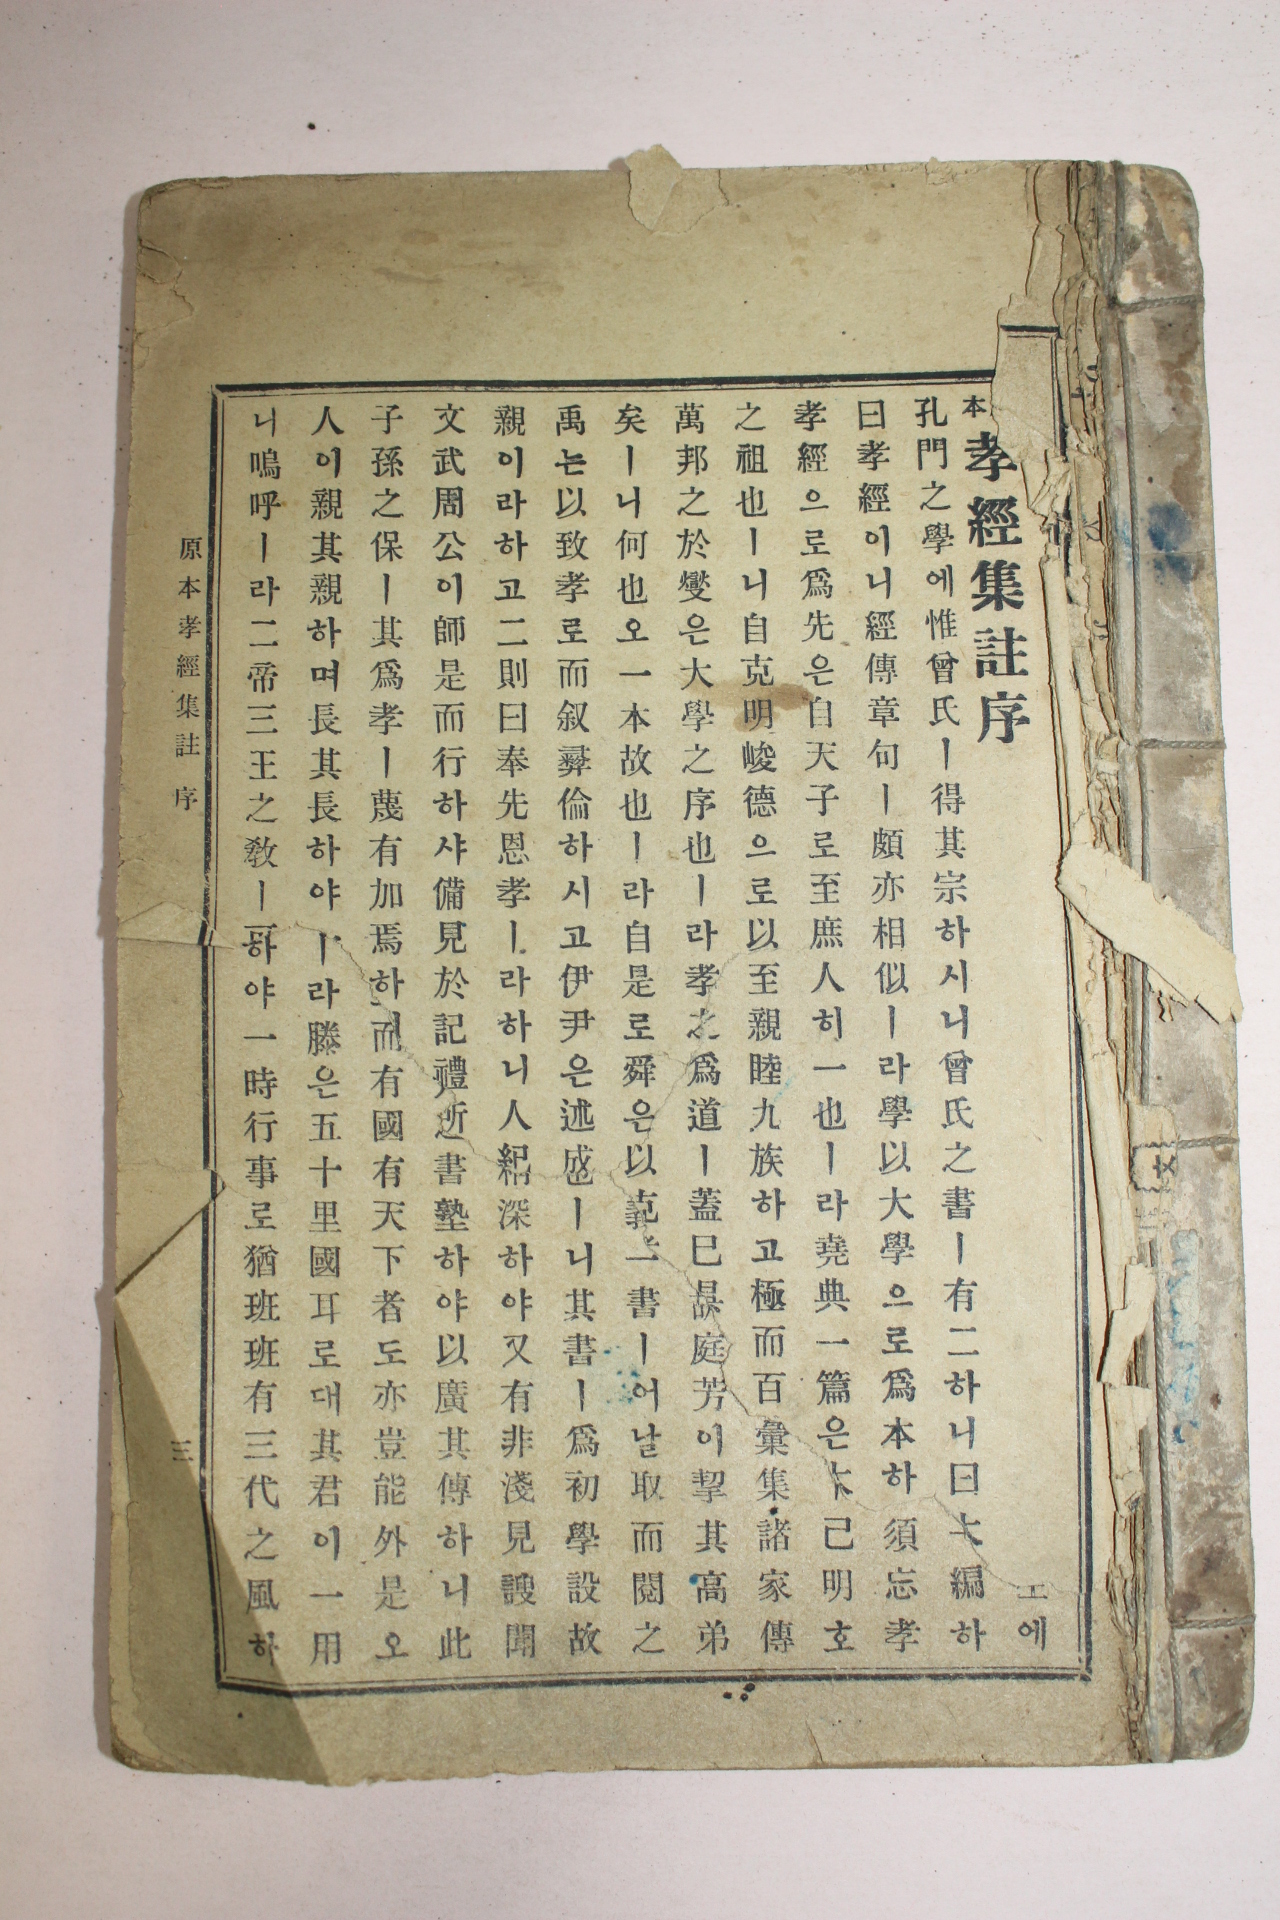 本孝經集註序
孔門之學에惟曾氏ㅣ得其宗하시니曾氏之書ㅣ有二하니曰大編하
曰孝經이니經傳章句ㅣ頗亦相似ㅣ라學以大學으로爲本하須忘孝
孝經으로爲先은自天子로至庶人히一也ㅣ라堯典一篇은大己明호
之祖也ㅣ니自克明峻德으로以至親睦九族하고極而百彙集諸家傳
萬邦之於燮은大學之序也ㅣ라孝之爲道ㅣ蓋巳庭芳이挈其高弟
矣ㅣ니何也오一本故也ㅣ라自是로舜은以克一書ㅣ어날取而閱之
禹는以致孝로而叙彛倫하시고伊尹은述盛ㅣ니其書ㅣ爲初學設故
親이라하고二則曰奉先恩孝ㅣ라하니人紀深하야又有非淺見謏聞
文武周公이師是而行하샤備見於記禮近書塾하야以廣其傳하니此
子孫之保ㅣ其爲孝ㅣ蔑有加焉하而有國有天下者도亦豈能外是오
人이親其親하며長其長하야ㅣ라滕은五十里國耳로대其君이一用
니嗚呼ㅣ라二帝三王之敎ㅣ하야一時行事로猶班班有三代之風하
原本孝經集註 序
三
에